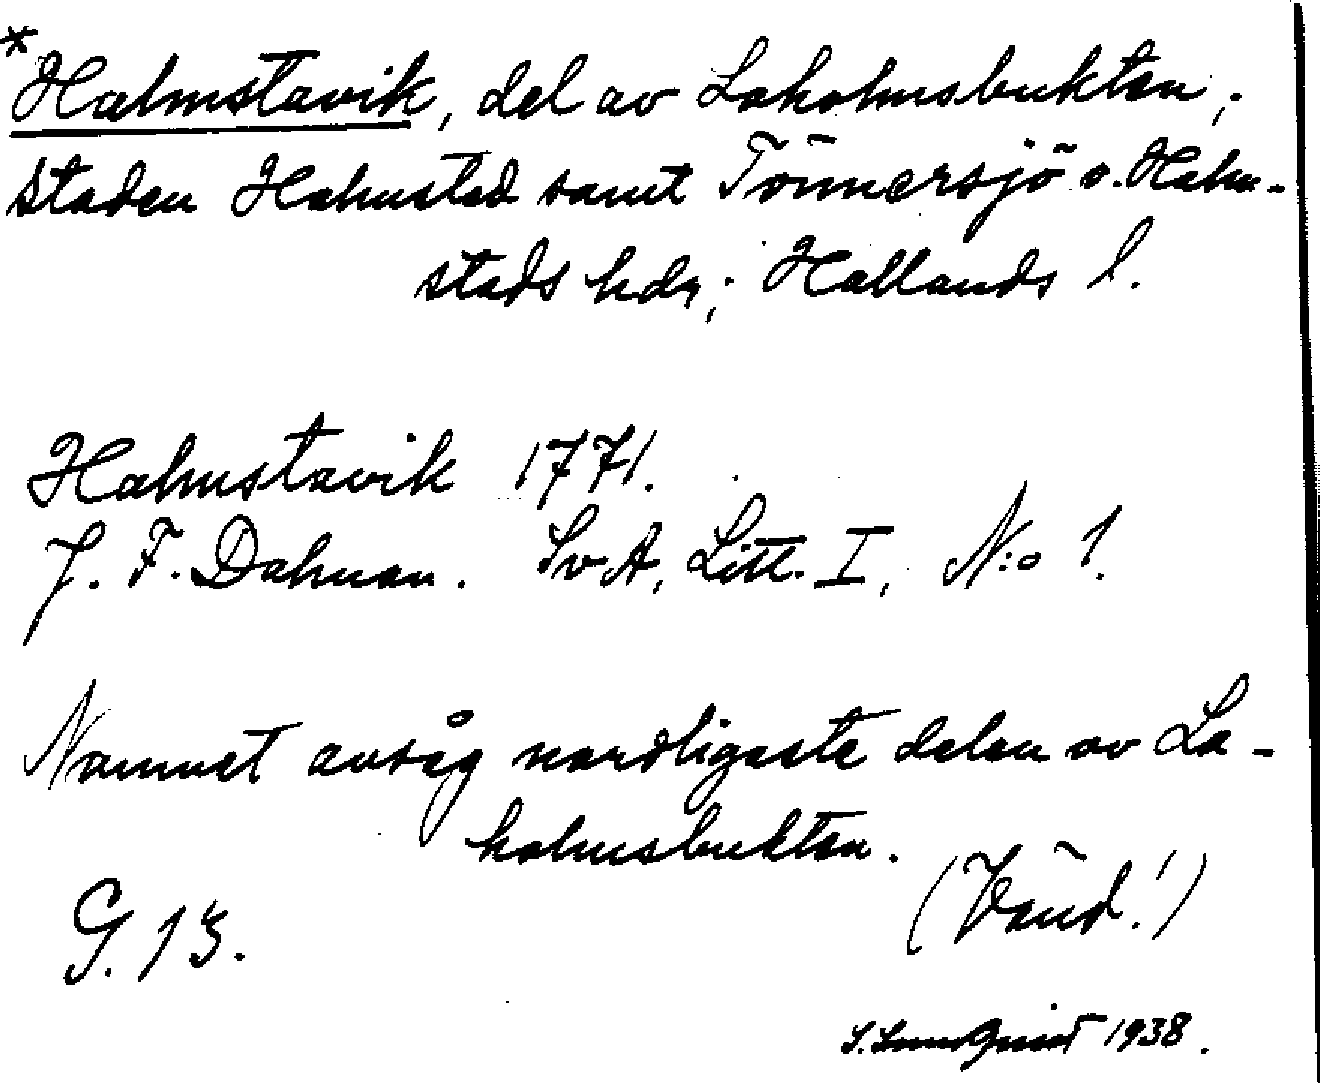 *Halmstavik, del av Laholmsbukten;
staden Halmstad samt Tönnersjö o. Halm-
stads hdr; Hallands l.
Halmstavik 1771.
J. F. Dahman. SvA, Litt. I, N:o 1.
Namnet avsåg nordligaste delen av La-
holmsbukten.
(Vänd!)
G. 13.
1938.